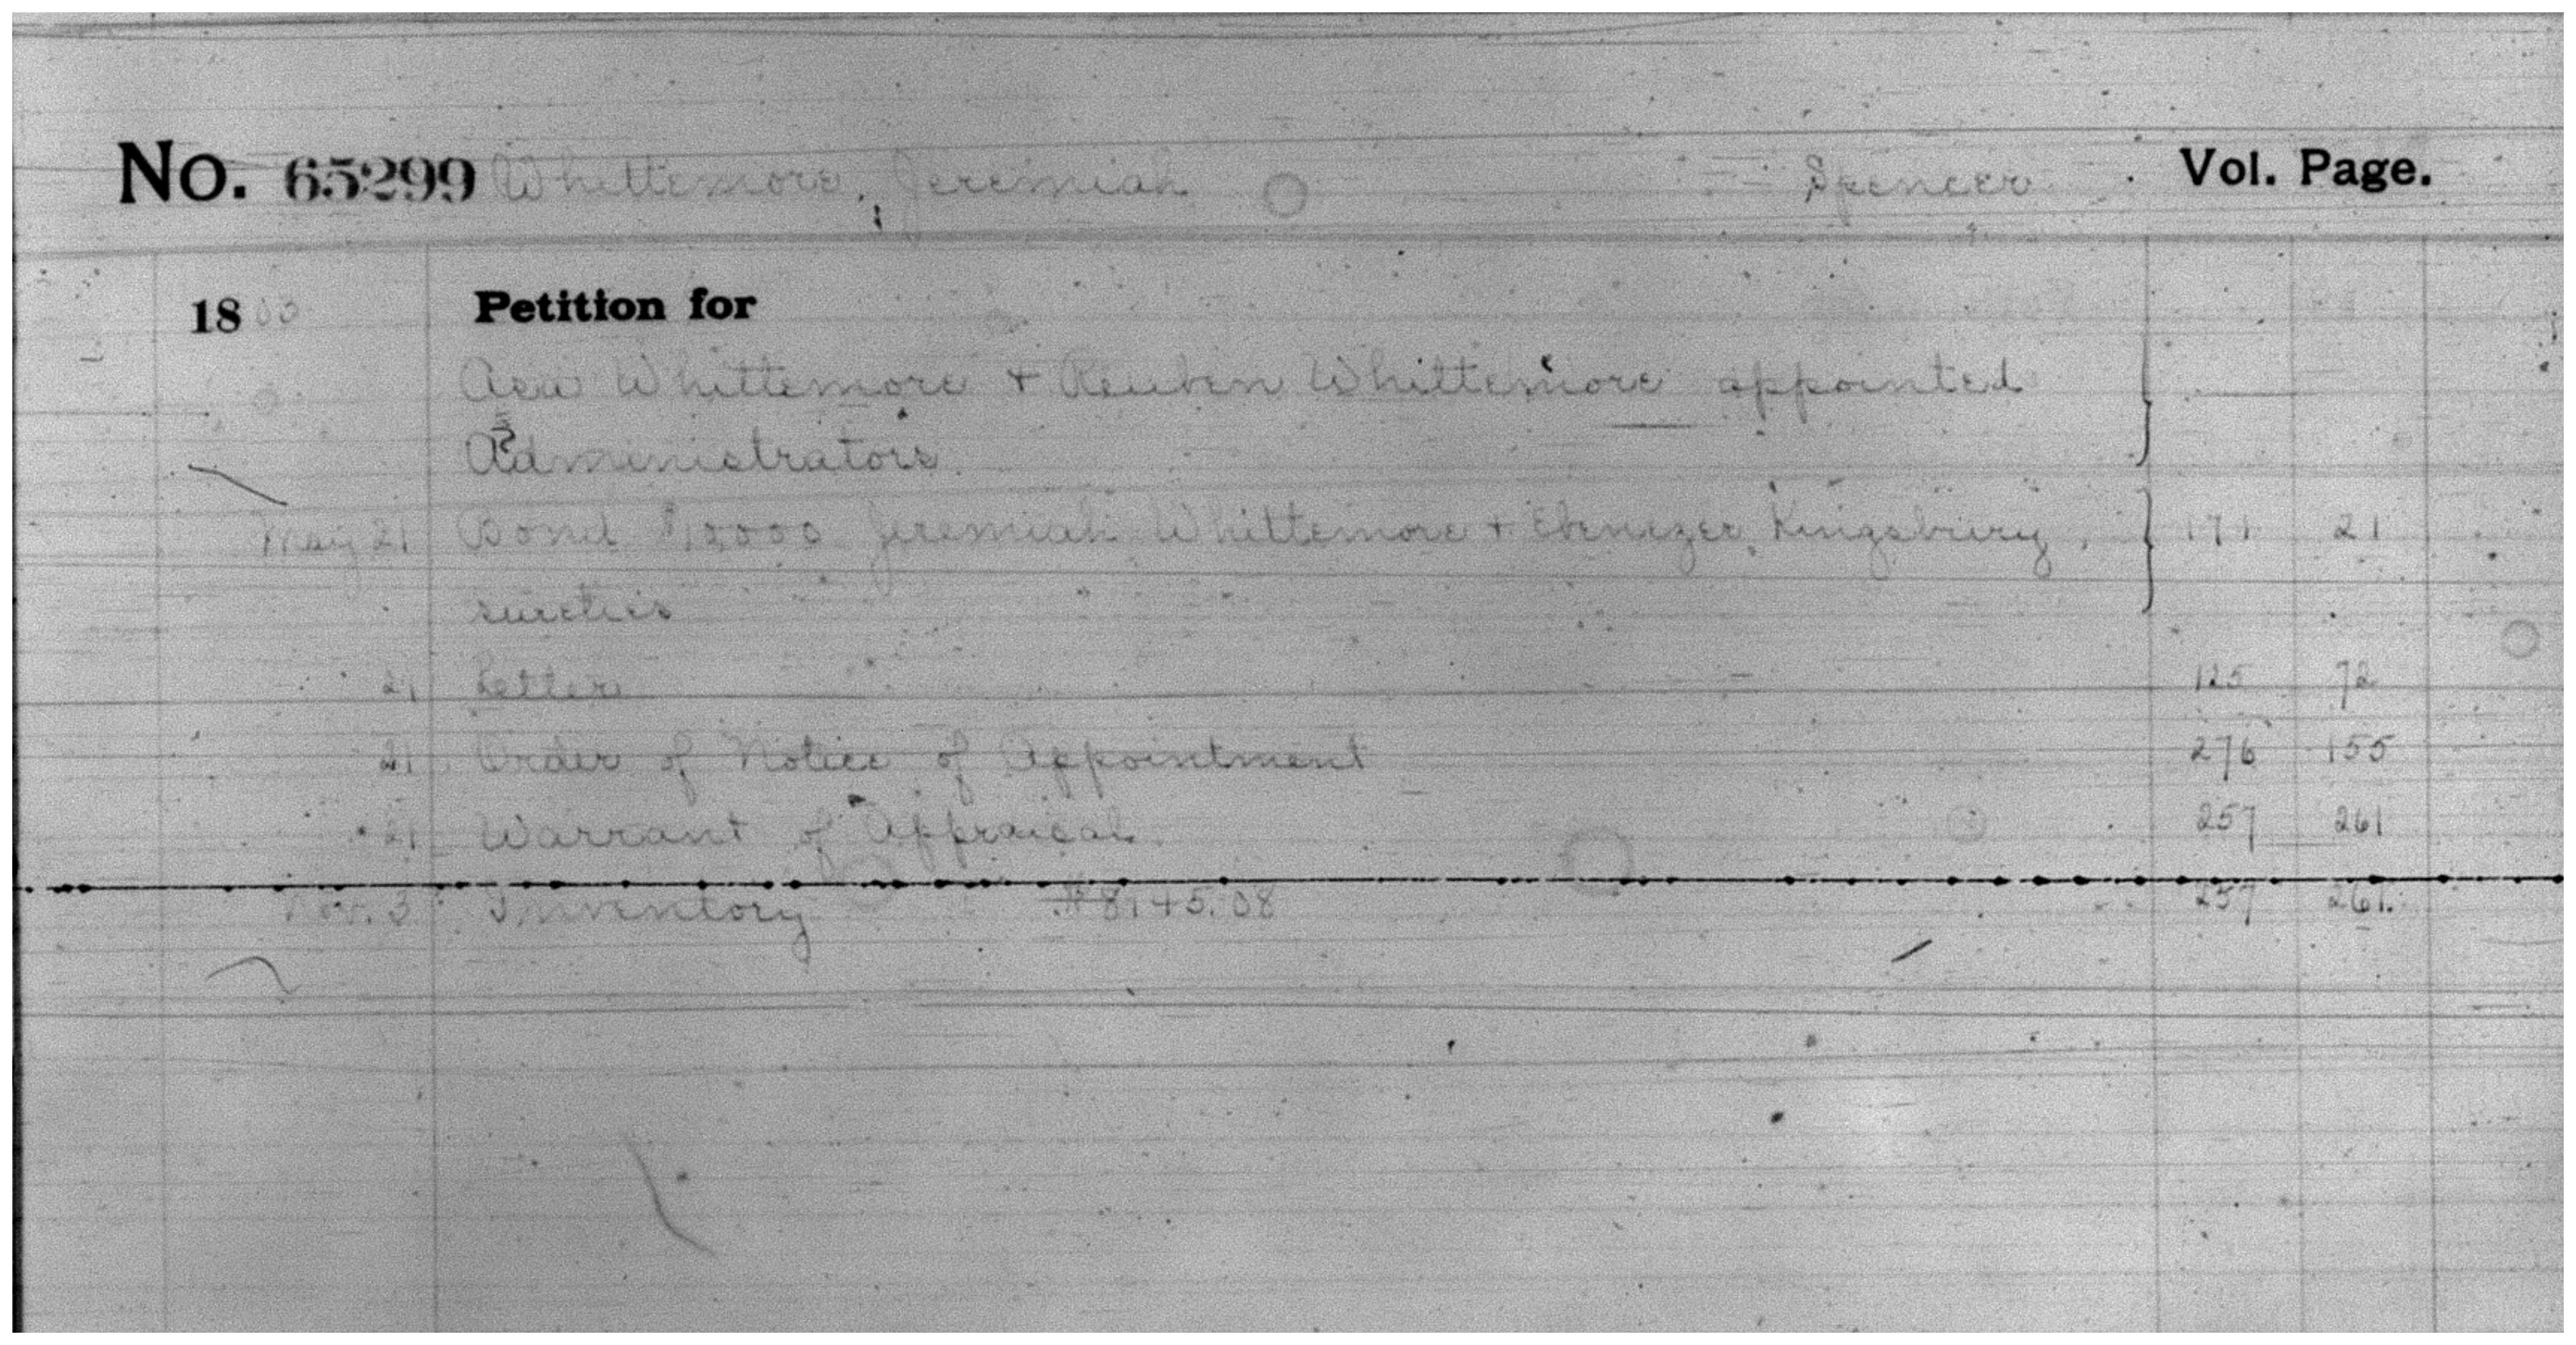 No. 65299 Whittemore, Jeremiah Spencer Vol. Page.
1803 Petition for
Asa Whittemore + Reuben Whittemore appointed
Administrators.
May 21 Bond $12,000 Jeremiah Whittemore + Ebenezer Kingsbury, 171 21
sureties
21 Letter 125 72
21 Order of Notice of Appointment 276 155
21 Warrant of Appraisal 257 261
Nov. 3 Inventory $8145.08 257 261.